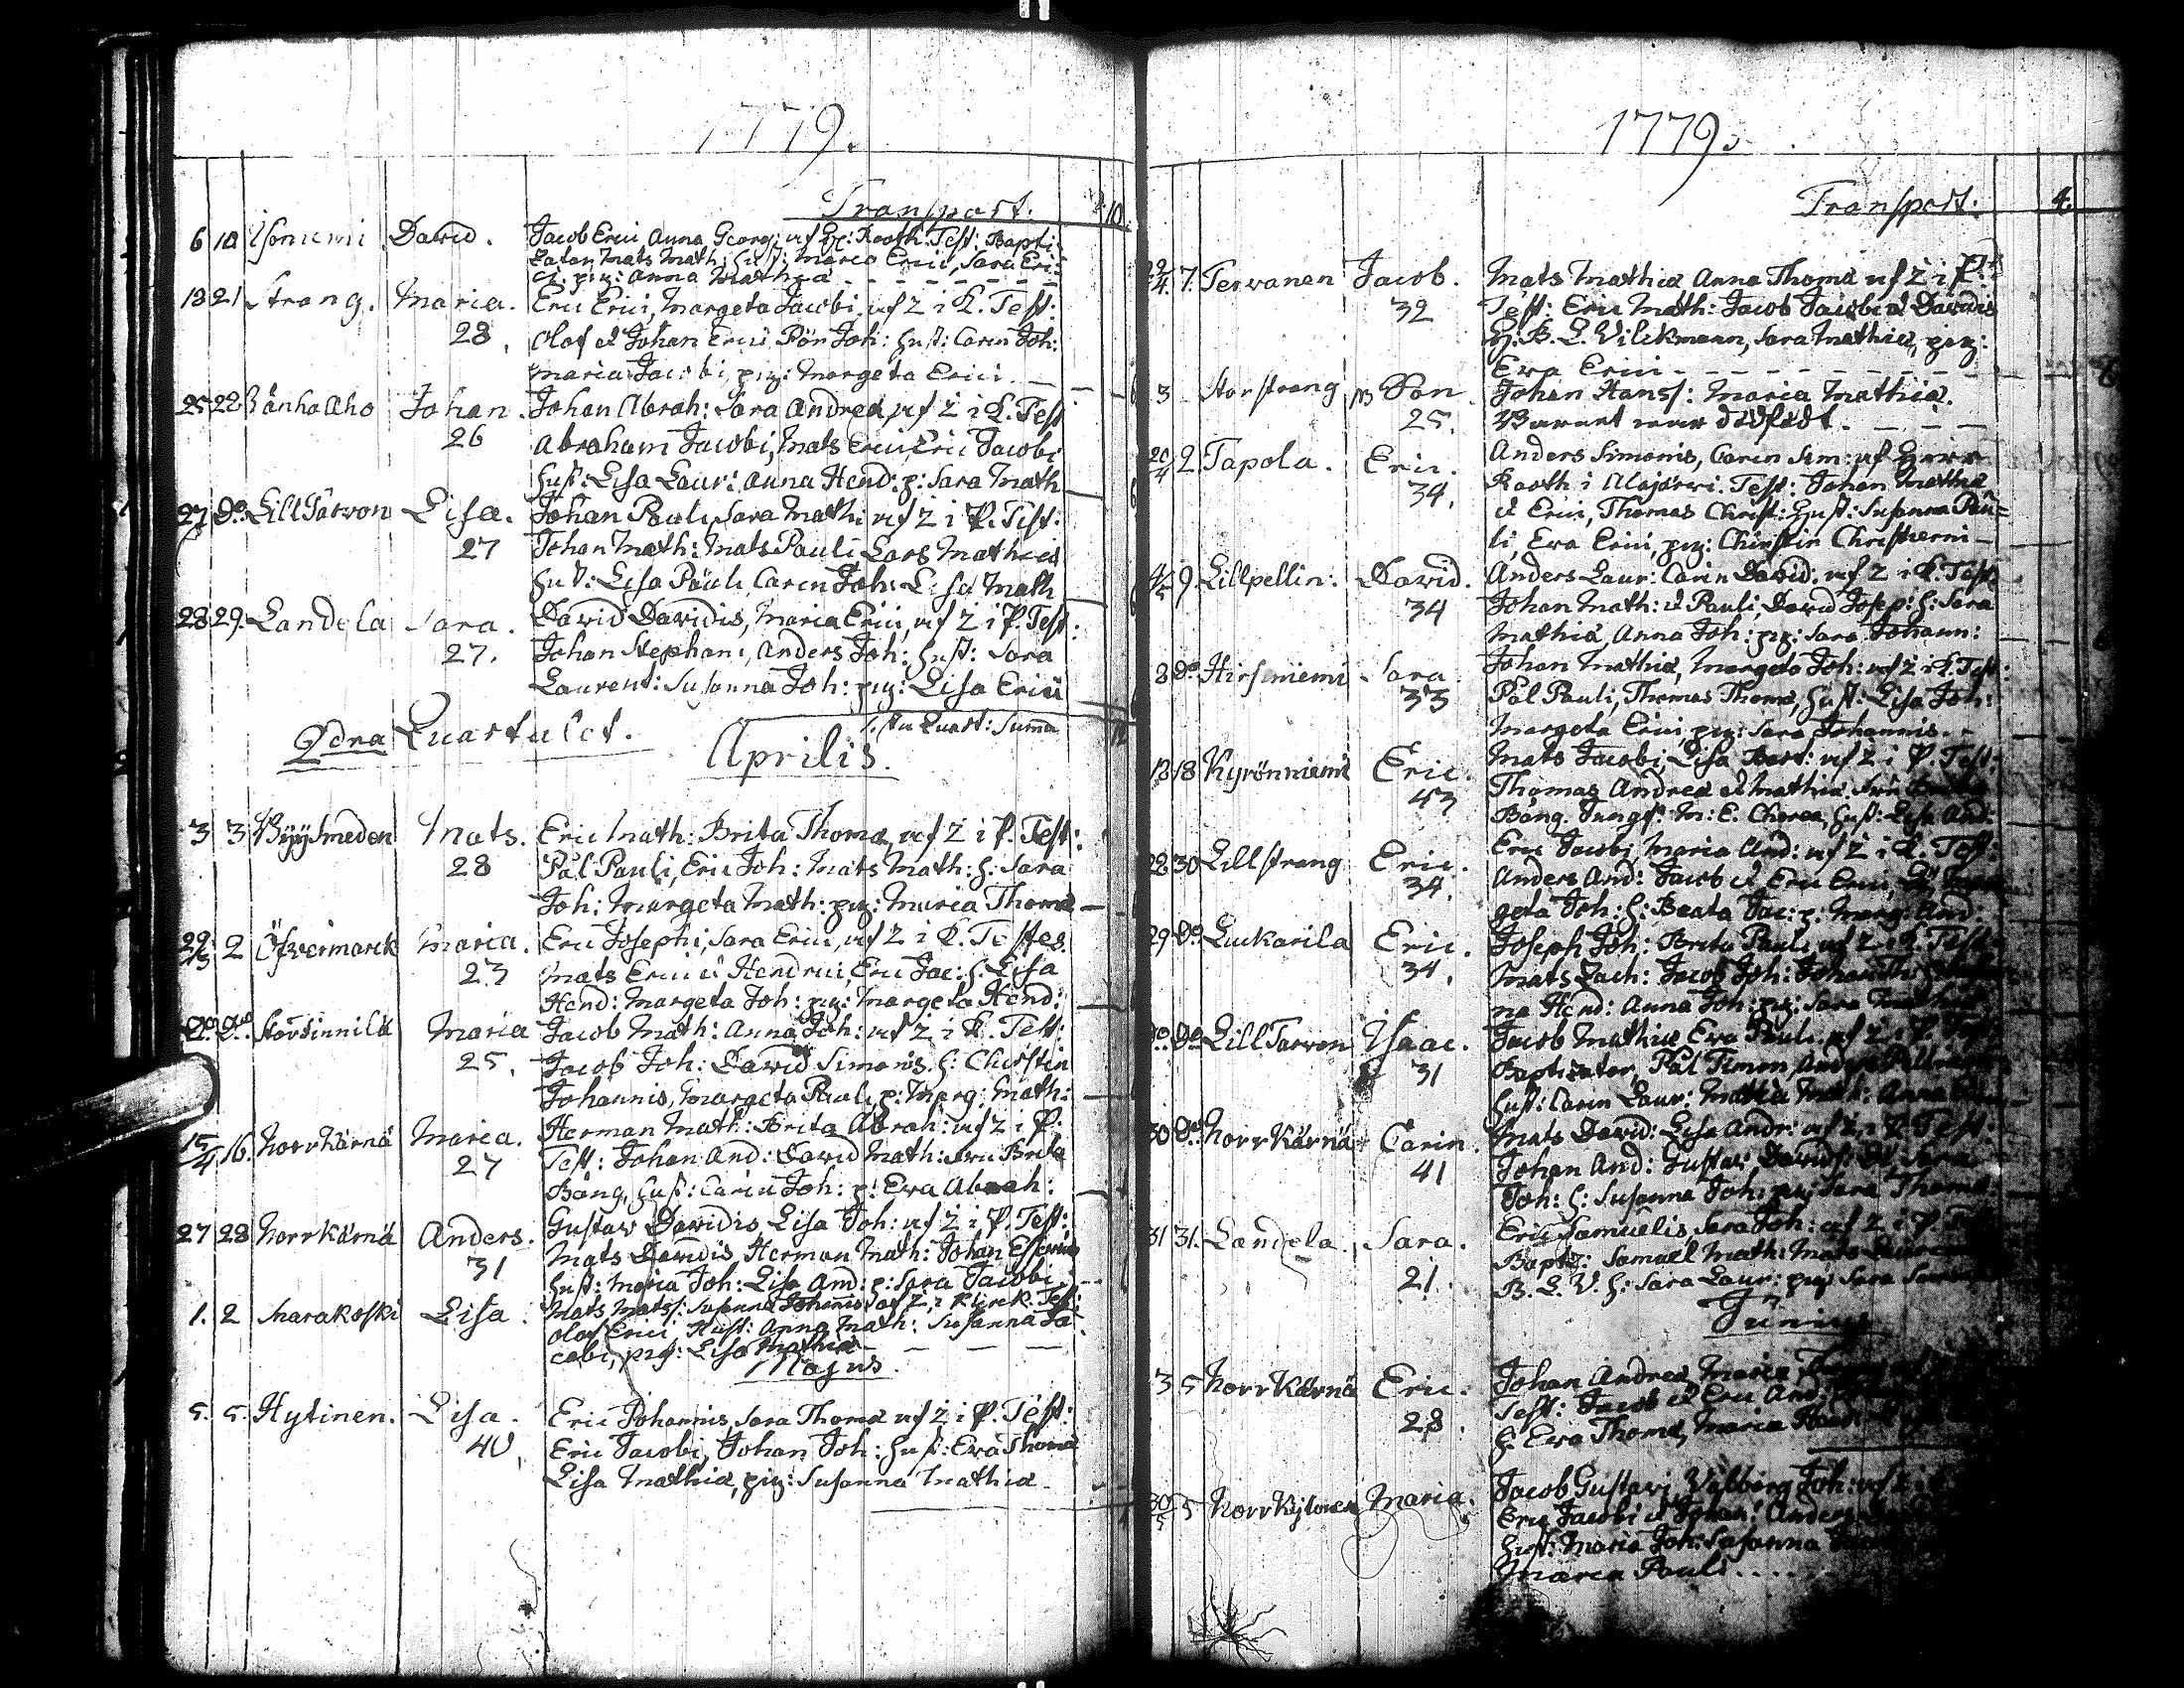 1779.
Transport. 10.
6 10 Isoniemi David. Jacob Erici Anna Georg: af H: Rooth. Test: Bapti-
zator Mats Math: Hust: Maria Erici, Sara Eri-
ci. pig: Anna Mathiæ
18 21 Strang. Maria. Eric Erici, Margeta Jacobi, af 2 i K. Test:
28. Olof et Johan Erici Pär Joh: Hust: Carin Joh:
Maria Jacobi, pig: Margeta Erici.
25 22 Bånka Aho Johan. Johan Abrah: Sara Andreæ, af 2 i K. Test
26 Abraham Jacobi, Mats Erici, Eric Jacobi
Hust: Lisa Laur: Anna Hend: p: Sara Math
27 Do. Lill Jarvon Lisa. Johan Pauli, Sara Math: af 2 i P. Test:
27 Johan Math: Mats Pauli Lars Mathiæ
Hust: Lisa Pauli, Carin Joh: Lisa Math
28 29. Landela Sara. David Davidis, Maria Erici, af 2 i P. Test:
27. Johan Stephani, Anders Joh: Hust: Sara
Laurent: Susanna Joh: pig: Lisa Erici
1:sta Quart: Summa
2dra Quartalet.
Aprilis.
3 3 Byysmeden Mats. Eric Math: Brita Thomæ, af 2 i P. Test:
28 Pål Pauli, Eric Joh: Mats Math: h: Sara
Joh: Margeta Math: pig: Maria Thomæ
29/3 2 Öfvermarck Maria. Eric Josephi, Sara Erici, af 2 i K. Testes.
23 Mats Erici et Hendrici, Eric Jac: h: Lisa
Hend: Margeta Joh: pig: Margeta Hend:
Do. Do. Storsinnilä Maria Jacob Math: Anna Joh: af 2 i K. Test:
25. Jacob Joh: David Simonis. h: Chirstin
Johannis, Margeta Pauli, p: Marg: Math:
15/4 16. Norrkärnä Maria. Herman Math: Brita Abrah: af 2 i P.
27 Test: Johan And: David Math: Fru Brita
Bång, Hust: Carin Joh: p: Eva Abrah:
27 28 Norrkärnä Anders. Gustav Davidis Lisa Joh: af 2 i P. Test:
31 Mats Davidis, Herman Math: Johan
Hust: Maria Joh: Lisa And: p: Sara Jacobi.
1. 2 Marakoski Lisa. Mats Matss: Susanna Johannis af 2 i Test:
Olof Erici, Hust: Anna Math: Susanna Ja-
cobi, pig: Lisa Mathiæ
Majus.
5. 5. Hytinen. Lisa. Eric Johannis, Sara Thomæ af 2 i P. Test:
40. Eric Jacobi, Johan Joh: Hust: Eva Thomæ
Lisa Mathiæ, pig: Susanna Mathiæ
1779.
Transport. 4.
22/4. 7. Tervanen Jacob. Mats Mathiæ Anna Thomæ af 2 i P.
32 Test: Eric Math: Jacob Jacobi et Davidis
B. L. Vilckmann, Sara Mathiæ, pig:
Eva Erici
3 Storstrang Son. Johan Hanss: Maria Mathiæ.
25. Barnet var dödfödt.
20/4 2 Tapola. Eric. Anders Simonis, Carin Sim: af Herr
34. Rooth i Alajärvi. Test: Johan Mathiæ
et Erici, Thomas Christ: Hust: Susanna Pau=
li, Eva Erici, pig: Chirstin Christierni
4/5 9. Lillpellin. David. Anders Laur: Carin David: af 2 i K. Test
34 Johan Math: et Pauli, David Josep: h: Sara
Mathiæ, Anna Joh: pig: Sara Johann:
8 Do Hirsiniemi Sara. Johan Mathiæ, Margeta Joh: af 2 i K. Test:
33 Pål Pauli, Thomas Thomæ, Hust: Lisa Joh:
Margeta Erici, pig: Sara Johannis.
13 18 Kyrönniemi Eric. Mats Jacobi, Lisa Bert: af 2 i P. Test:
43 Thomas Andreæ et Mathiæ Fru Brita
Bång. Jungf: M: E. Chorea, Hust: Lisa And:
22 30 Lillstrang Eric. Eric Jacobi Maria And: af 2 i K. Test:
34. Anders And: Jacob et Eric Erici,
geta Joh: h: Beata Jac: p: Marg: And:
29 Do Luckarila Eric. Joseph Joh: Brita Pauli af 2 i K. Test:
34. Mats Zach: Jacob Joh: Johan Th:
na Hend: Anna Joh: pig: Sara
Do. Do Lill Jarvon Isaac. Jacob Mathiæ Eva Pauli af 2 i P. Test
31 Baptizator, Pål Simon, Anders
Hust: Carin Laur: Maria Math: Anna
30 Do Norrkärnä Carin. Mats David: Lisa Andr: af 2 i P. Test:
41 Johan And: Gustav Davids:
Joh: h: Susanna Joh: pig: Sara Thomæ
31 31. Landela Sara. Eric Samuelis, Sara Joh: af 2 i P.
21. Bapts: Samuel Math: Mats
B. L. V. h: Sara Laur: pig: Sara
Junius
3 5 Norrkärnä Eric. Johan Andreæ Maria
28. Test: Jacob et Eric And:
h: Eva Thomæ, Maria
30/5 5 Norrkylmen Maria. Jacob Gustavi Valborg Joh: af 2 i
Eric Jacobi et Johan: Anders
Hust: Maria Joh: Susanna
Maria Pauli